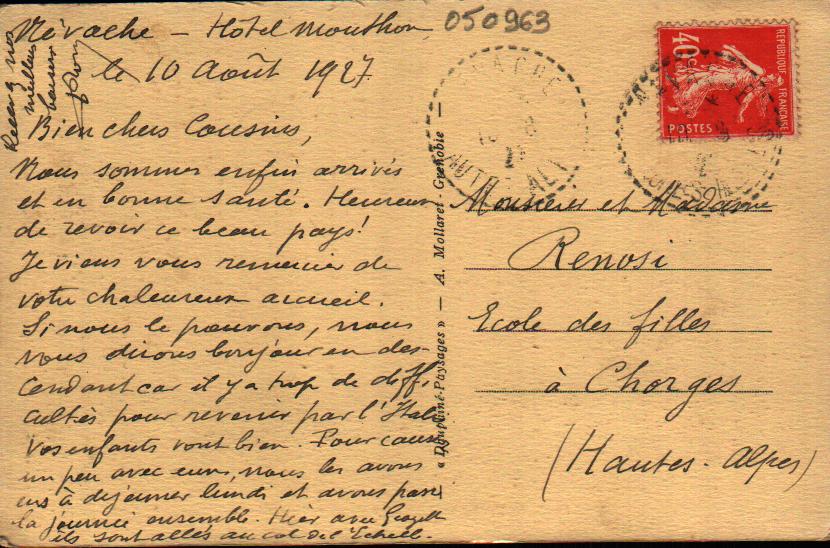 Névache - Hôtel Mouthon
le 10 Août 1927
Bien chers Cousins,
Nous sommes enfin arrivés
et en bonne santé. Heureux
de revoir ce beau pays!
Je viens vous remercier de
votre chaleureux accueil.
Si nous le pouvons, nous
vous dirons bonjour en des-
cendant car il y a trop de diffi-
cultés pour revenir par l'Italie
Vos enfants vont bien. Pour causer
un peu avec eux, nous les avons
eus à déjeuner lundi et avons passé
la journée ensemble. Hier avec
ils sont allés au col de l'Echelle.
Recevez nos
meilleurs
baisers
« Dauphiné-Paysages » — A. Mollaret - Grenoble —
050963
40c
REPUBLIQUE FRANÇAISE
POSTES
Monsieur et Madame
Renosi
Ecole des filles
à Chorges
(Hautes-Alpes)